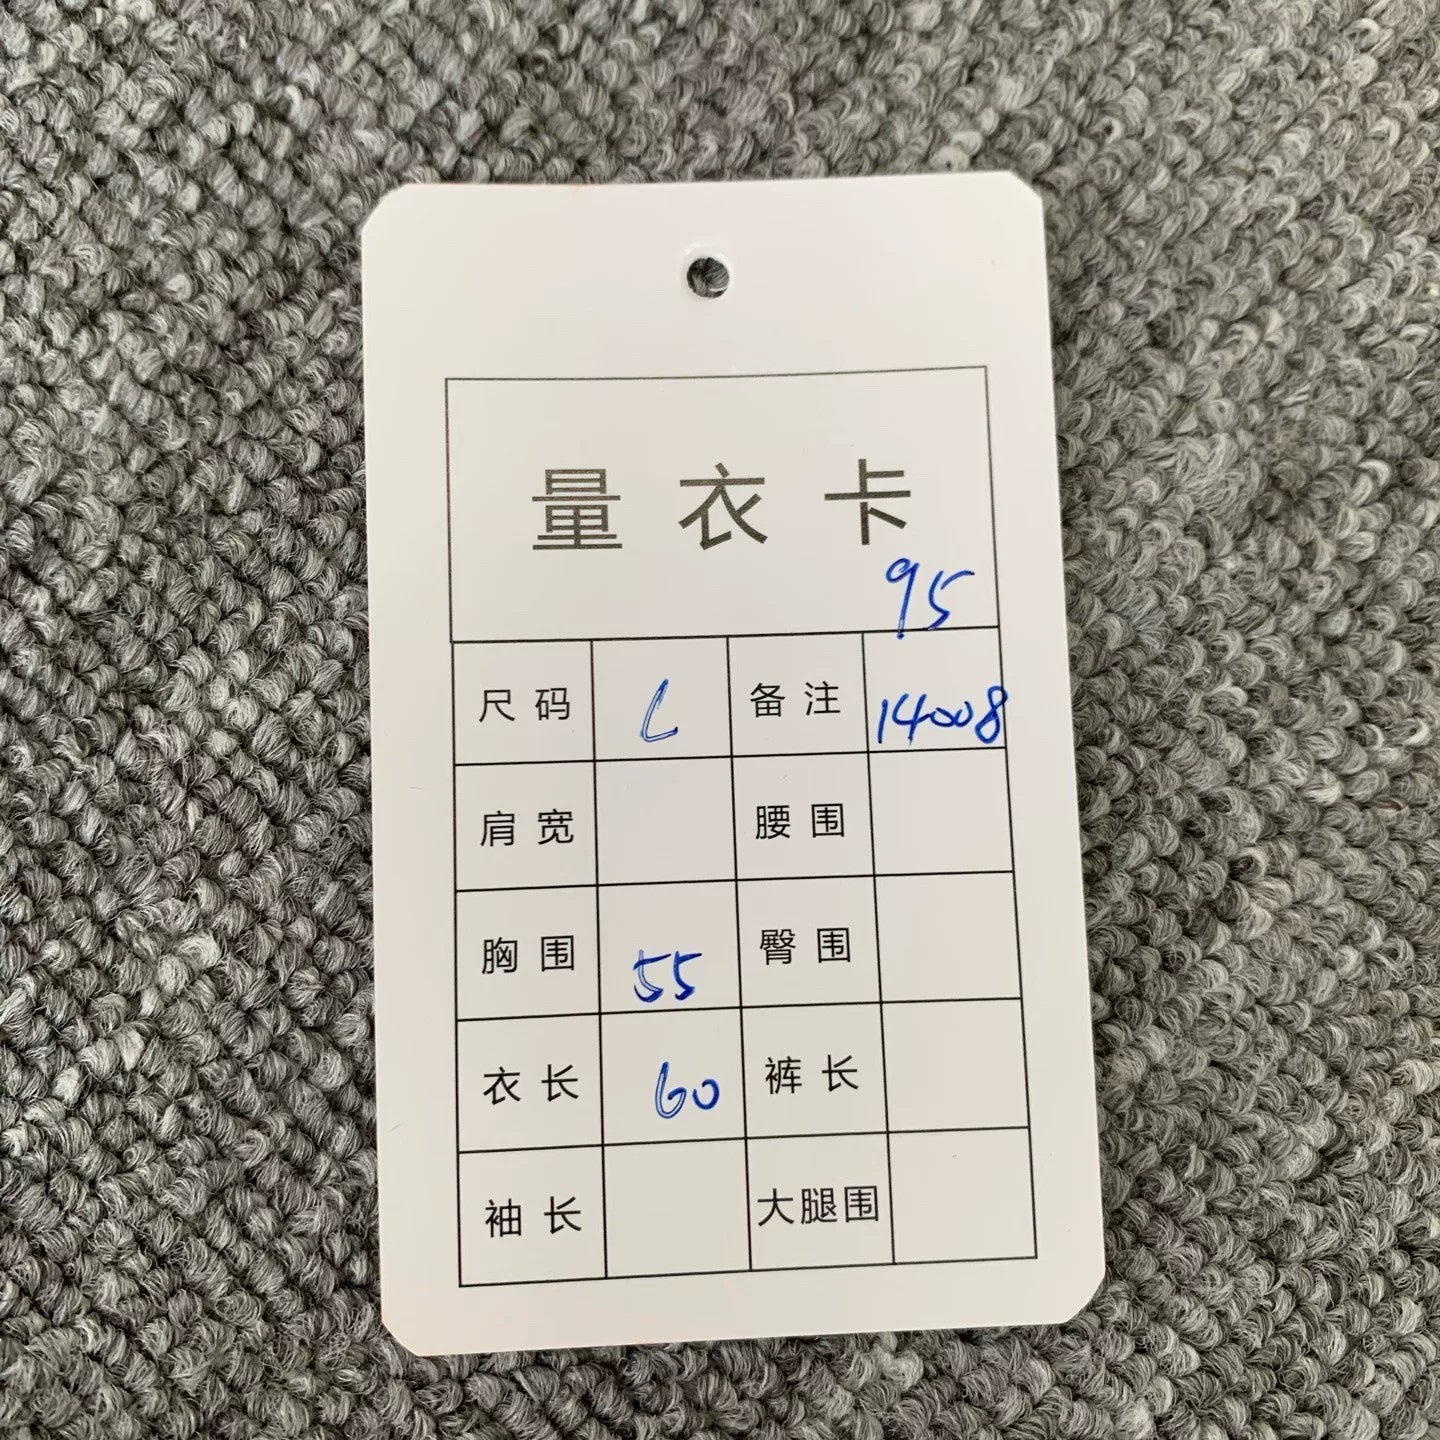 量衣卡
95
尺码 L 备注 14008
肩宽 腰围
胸围 55 臀围
衣长 60 裤长
袖长 大腿围